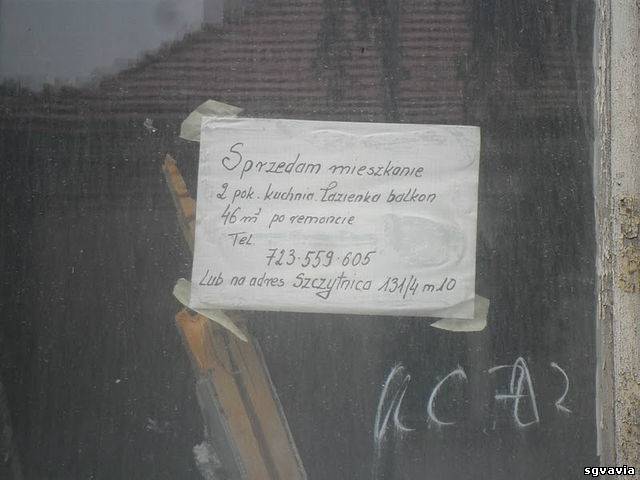 Sprzedam mieszkanie
2 pok. kuchnia. Łazienka balkon
46 m² po remoncie
Tel.
723-559-605
Lub na adres Szczytnica 131/4 m 10
sgvavia